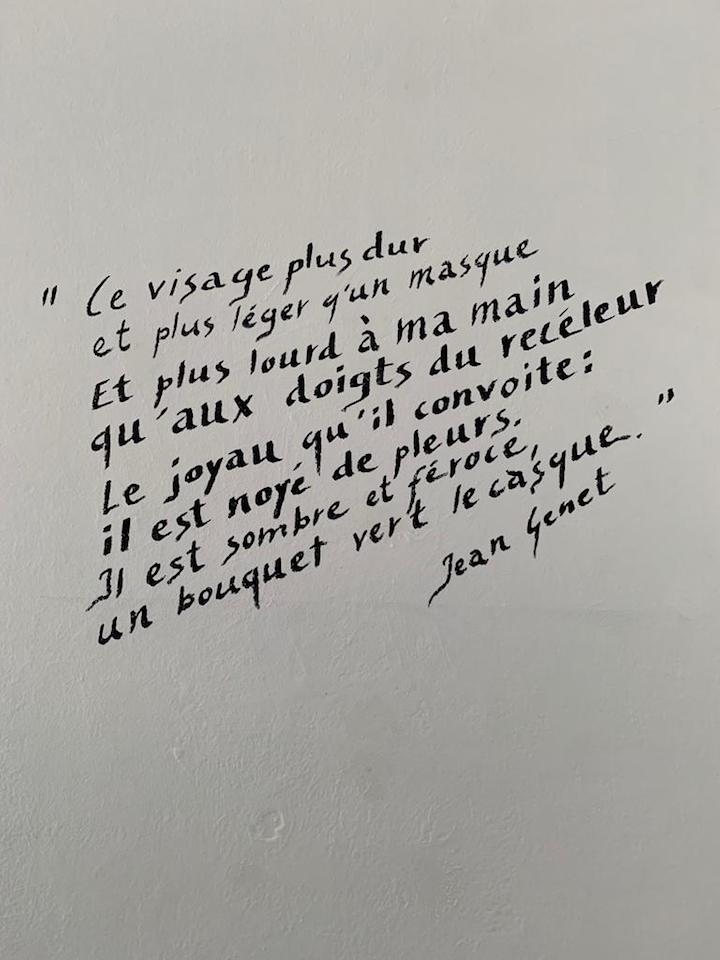 " Ce visage plus dur
et plus léger q'un masque
Et plus lourd à ma main
qu'aux doigts du recéleur
Le joyau qu'il convoite:
il est noyé de pleurs.
Il est sombre et féroce,
un bouquet vert le casque. "
Jean Genet